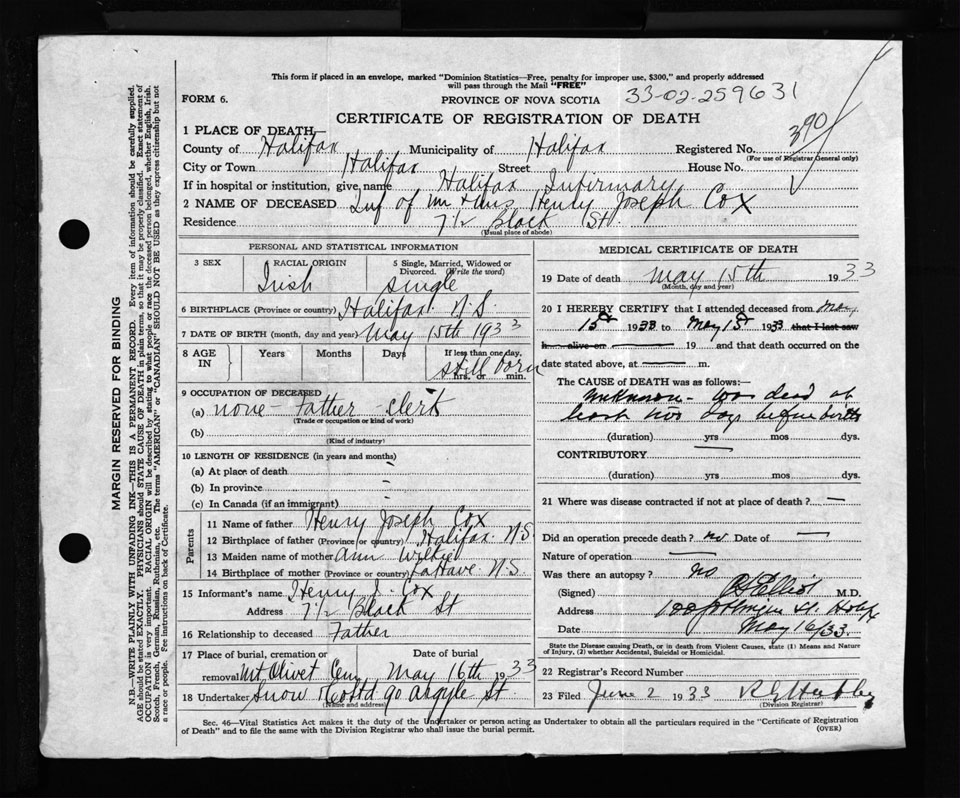 This form if placed in an envelope, marked "Dominion Statistics—Free, penalty for improper use, $300," and properly addressed
will pass through the Mail "FREE"
FORM 6.
PROVINCE OF NOVA SCOTIA 33-02-259631
CERTIFICATE OF REGISTRATION OF DEATH
1 PLACE OF DEATH—
County of Halifax Municipality of Halifax Registered No. 390
(For use of Registrar General only)
City or Town Halifax Street House No.
If in hospital or institution, give name Halifax Infirmary
2 NAME OF DECEASED Inf of Mr + Mrs Henry Joseph Cox
Residence 7 1/2 Black St.
(Usual place of abode)
PERSONAL AND STATISTICAL INFORMATION
3 SEX RACIAL ORIGIN 5 Single, Married, Widowed or
Divorced. (Write the word)
Irish Single
6 BIRTHPLACE (Province or country) Halifax N.S.
7 DATE OF BIRTH (month, day and year) May 15th 1933
8 AGE IN Years Months Days If less than one day,
still born
hrs. or min.
9 OCCUPATION OF DECEASED
(a) none - Father - Clerk
(Trade or occupation or kind of work)
(b)
(Kind of industry)
10 LENGTH OF RESIDENCE (in years and months)
(a) At place of death -
(b) In province -
(c) In Canada (if an immigrant) -
Parents
11 Name of father Henry Joseph Cox
12 Birthplace of father (Province or country) Halifax. N.S.
13 Maiden name of mother Ann Wilkie
14 Birthplace of mother (Province or country) LaHave N.S.
15 Informant's name Henry J. Cox
Address 7 1/2 Black St
16 Relationship to deceased Father
17 Place of burial, cremation or Date of burial
removal Mt. Olivet Cem May 16th 1933
18 Undertaker Snow & Co Ltd 90 Argyle St
(Name and address)
MEDICAL CERTIFICATE OF DEATH
19 Date of death May 15th 1933
(Month, day and year)
20 I HEREBY CERTIFY that I attended deceased from May
15th 1933 to May 15th 1933 that I last saw
h alive on 19 and that death occurred on the
date stated above, at m.
The CAUSE OF DEATH was as follows:—
Unknown - was dead at
least two days before birth
(duration) yrs mos dys.
CONTRIBUTORY
(duration) yrs mos dys.
21 Where was disease contracted if not at place of death? —
Did an operation precede death? no Date of —
Nature of operation —
Was there an autopsy? no
(Signed) M.D.
Address
Date May 16/33.
State the Disease causing Death, or in death from Violent Causes, state (1) Means and Nature
of Injury, (2) whether Accidental, Suicidal or Homicidal.
22 Registrar's Record Number
23 Filed June 2 1933
(Division Registrar)
Sec. 46—Vital Statistics Act makes it the duty of the Undertaker or person acting as Undertaker to obtain all the particulars required in the "Certificate of Registration
of Death" and to file the same with the Division Registrar who shall issue the burial permit.
(OVER)
MARGIN RESERVED FOR BINDING
N.B.—WRITE PLAINLY WITH UNFADING INK—THIS IS A PERMANENT RECORD. Every item of information should be carefully supplied.
AGE should be stated EXACTLY. PHYSICIANS should STATE CAUSE OF DEATH in plain terms, so that it may be properly classified. Exact statement of
OCCUPATION is very important. RACIAL ORIGIN will be described by stating to what people or race the deceased person belonged, whether English, Irish,
Scotch, French, German, Russian, Ruthenian, etc. The terms "AMERICAN" or "CANADIAN" SHOULD NOT BE USED as they express citizenship but not
a race or people. See instructions on back of Certificate.